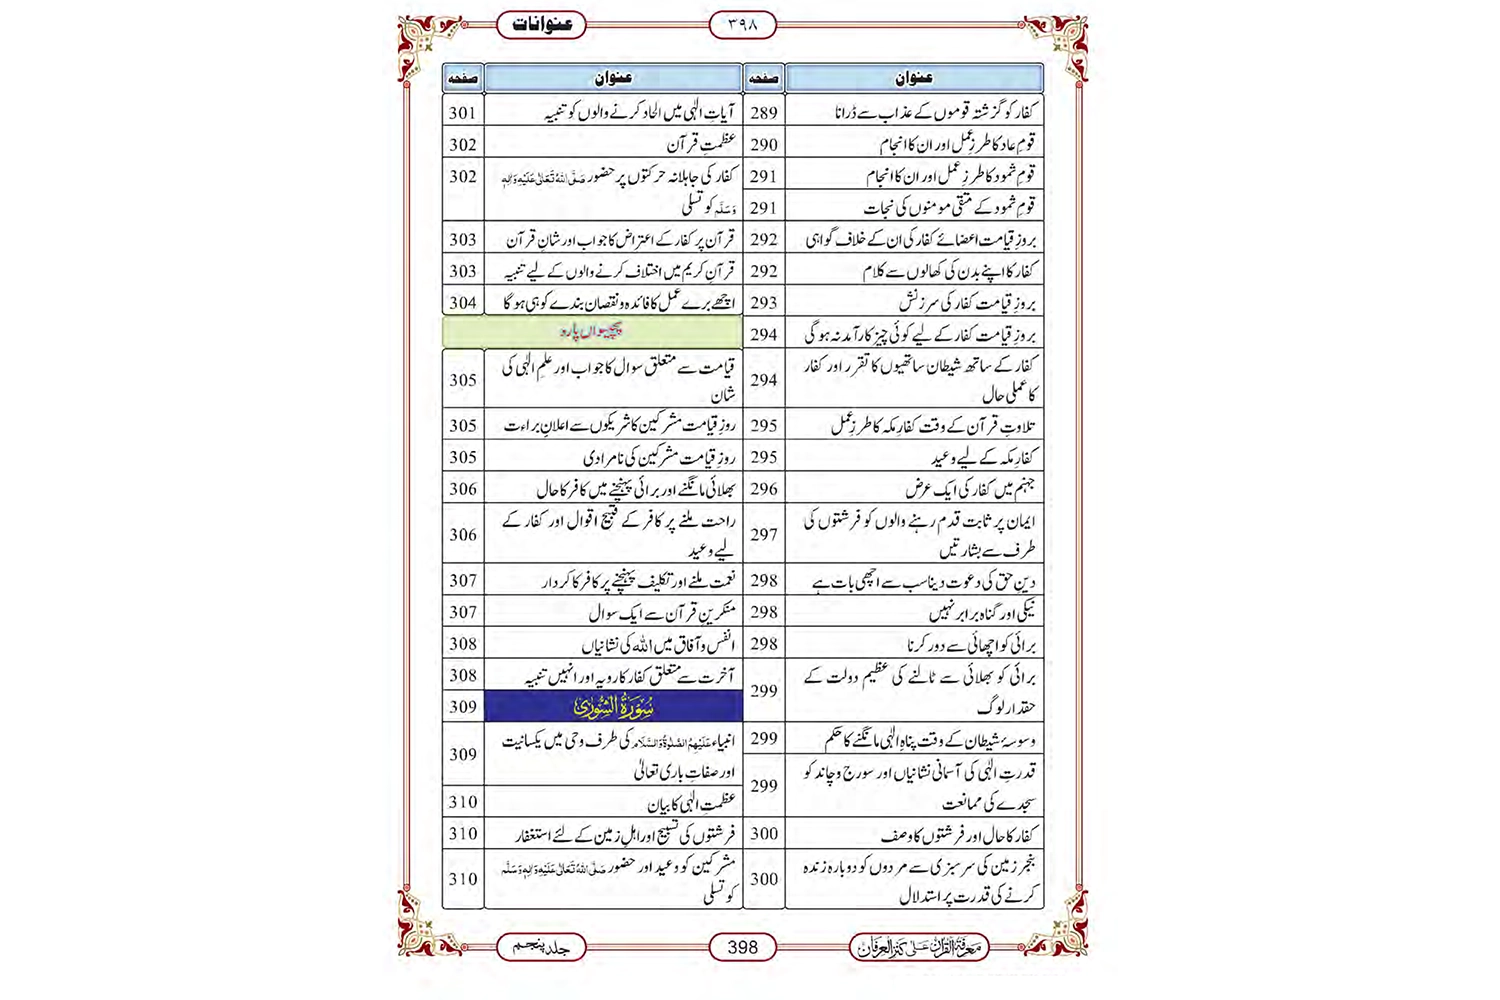 عنوانات
۳۹۸
عنوان صفحہ
کفار کو گزشتہ قوموں کے عذاب سے ڈرانا 289
قومِ عاد کا طرزِ عمل اور ان کا انجام 290
قومِ ثمود کا طرزِ عمل اور ان کا انجام 291
قومِ ثمود کے متقی مومنوں کی نجات 291
بروزِ قیامت اعضائے کفار کی ان کے خلاف گواہی 292
کفار کا اپنے بدن کی کھالوں سے کلام 292
بروزِ قیامت کفار کی سرزنش 293
بروزِ قیامت کفار کے لیے کوئی چیز کارآمد نہ ہوگی 294
کفار کے ساتھ شیطان ساتھیوں کا تقرر اور کفار
کا عملی حال 294
تلاوتِ قرآن کے وقت کفارِ مکہ کا طرزِ عمل 295
کفارِ مکہ کے لیے وعید 295
جہنم میں کفار کی ایک عرض 296
ایمان پر ثابت قدم رہنے والوں کو فرشتوں کی
طرف سے بشارتیں 297
دینِ حق کی دعوت دینا سب سے اچھی بات ہے 298
نیکی اور گناہ برابر نہیں 298
برائی کو اچھائی سے دور کرنا 298
برائی کو بھلائی سے ٹالنے کی عظیم دولت کے
حقدار لوگ 299
وسوسۂ شیطان کے وقت پناہِ الٰہی مانگنے کا حکم 299
قدرتِ الٰہی کی آسمانی نشانیاں اور سورج و چاند کو
سجدے کی ممانعت 299
کفار کا حال اور فرشتوں کا وصف 300
بنجر زمین کی سرسبزی سے مردوں کو دوبارہ زندہ
کرنے کی قدرت پر استدلال 300
عنوان صفحہ
آیاتِ الٰہی میں الحاد کرنے والوں کو تنبیہ 301
عظمتِ قرآن 302
کفار کی جاہلانہ حرکتوں پر حضور صَلَّی اللّٰہُ تَعَالٰی عَلَیْہِ وَاٰلِہٖ
وَسَلَّم کو تسلی 302
قرآن پر کفار کے اعتراض کا جواب اور شانِ قرآن 303
قرآنِ کریم میں اختلاف کرنے والوں کے لیے تنبیہ 303
اچھے برے عمل کا فائدہ و نقصان بندے کو ہی ہوگا 304
پچیسواں پارہ
قیامت سے متعلق سوال کا جواب اور علمِ الٰہی کی
شان 305
روزِ قیامت مشرکین کا شریکوں سے اعلانِ براءت 305
روزِ قیامت مشرکین کی نامرادی 305
بھلائی مانگنے اور برائی پہنچنے میں کافر کا حال 306
راحت ملنے پر کافر کے قبیح اقوال اور کفار کے
لیے وعید 306
نعمت ملنے اور تکلیف پہنچنے پر کافر کا کردار 307
منکرینِ قرآن سے ایک سوال 307
انفس و آفاق میں اللہ کی نشانیاں 308
آخرت سے متعلق کفار کا رویہ اور انہیں تنبیہ 308
سُوْرَۃُ الشُّوْرٰی 309
انبیاء عَلَیْہِمُ الصَّلٰوۃُ وَالسَّلَام کی طرف وحی میں یکسانیت
اور صفاتِ باری تعالیٰ 309
عظمتِ الٰہی کا بیان 310
فرشتوں کی تسبیح اور اہلِ زمین کے لئے استغفار 310
مشرکین کو وعید اور حضور صَلَّی اللّٰہُ تَعَالٰی عَلَیْہِ وَاٰلِہٖ وَسَلَّم
کو تسلی 310
معرفۃ القرآن علی کنز العرفان
398
جلد پنجم